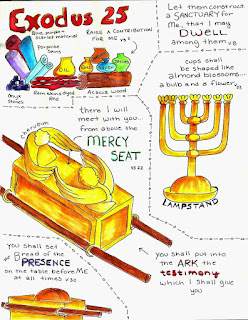 Exodus 25
Blue, purple +
scarlet material
Porpoise
Skins
RAISE A CONTRIBUTION
FOR ME v3
OIL
Onyx
Stones
Ram skins dyed
Red
Acacia wood
Let them construct
a SANCTUARY for
Me, that I may
DWELL
among them v8
cups shall
be shaped like
almond blossoms...
a bulb and a flower v33
LAMPSTAND
there I will
meet with you...
from above the
MERCY
SEAT
v22
cherubim
You shall set
Bread of the
PRESENCE
on the table before ME
at all times v30
You shall put into
the ARK the
testimony
which I shall give
you